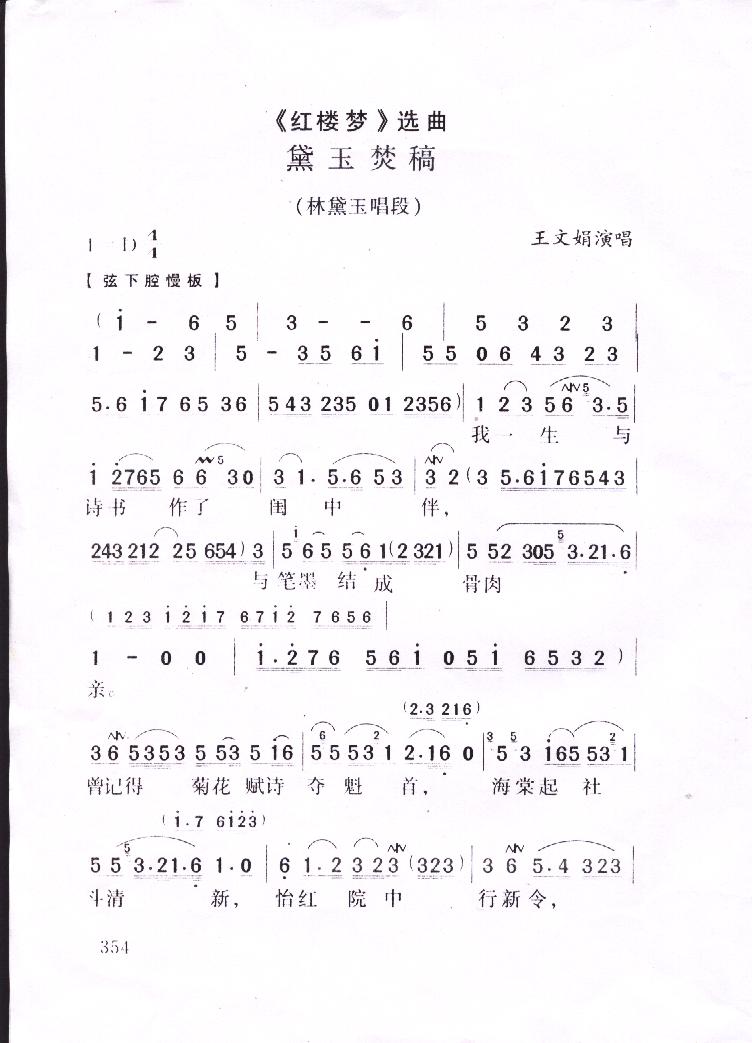 《红楼梦》选曲
黛玉焚稿
(林黛玉唱段)
王文娟演唱
【弦下腔慢板】
( i - 6 5 | 3 - - 6 | 5 3 2 3 |
1 - 2 3 | 5 - 3 5 6 i | 5 5 0 6 4 3 2 3 |
5. 6 i 7 6 5 3 6 | 5 4 3 2 3 5 0 1 2 3 5 6 ) | 1 2 3 5 6 3. 5 |
我一生与
i 2 7 6 5 6 6 3 0 | 3 1. 5. 6 5 3 | 3 2 ( 3 5. 6 i 7 6 5 4 3
诗书作了闺中伴,
2 4 3 2 1 2 2 5 6 5 4 ) 3 | 5 6 5 5 6 1 ( 2 3 2 1 ) | 5 5 2 3 0 5 3. 2 1. 6
与笔墨结成骨肉
( 1 2 3 i 2 i 7 6 7 i 2 7 6 5 6 |
1 - 0 0 | i. 2 7 6 5 6 i 0 5 i 6 5 3 2 )
亲。
(2. 3 2 1 6)
3 6 5 3 5 3 5 5 3 5 i 6 | 5 5 5 3 1 2. 1 6 0 | 5 3 i 6 5 5 3 1
曾记得菊花赋诗夺魁首,海棠起社
( i. 7 6 i 2 3 )
5 5 3. 2 1. 6 1. 0 | 6 1. 2 3 2 3 (3 2 3) | 3 6 5. 4 3 2 3
斗清新,怡红院中行新令,
354